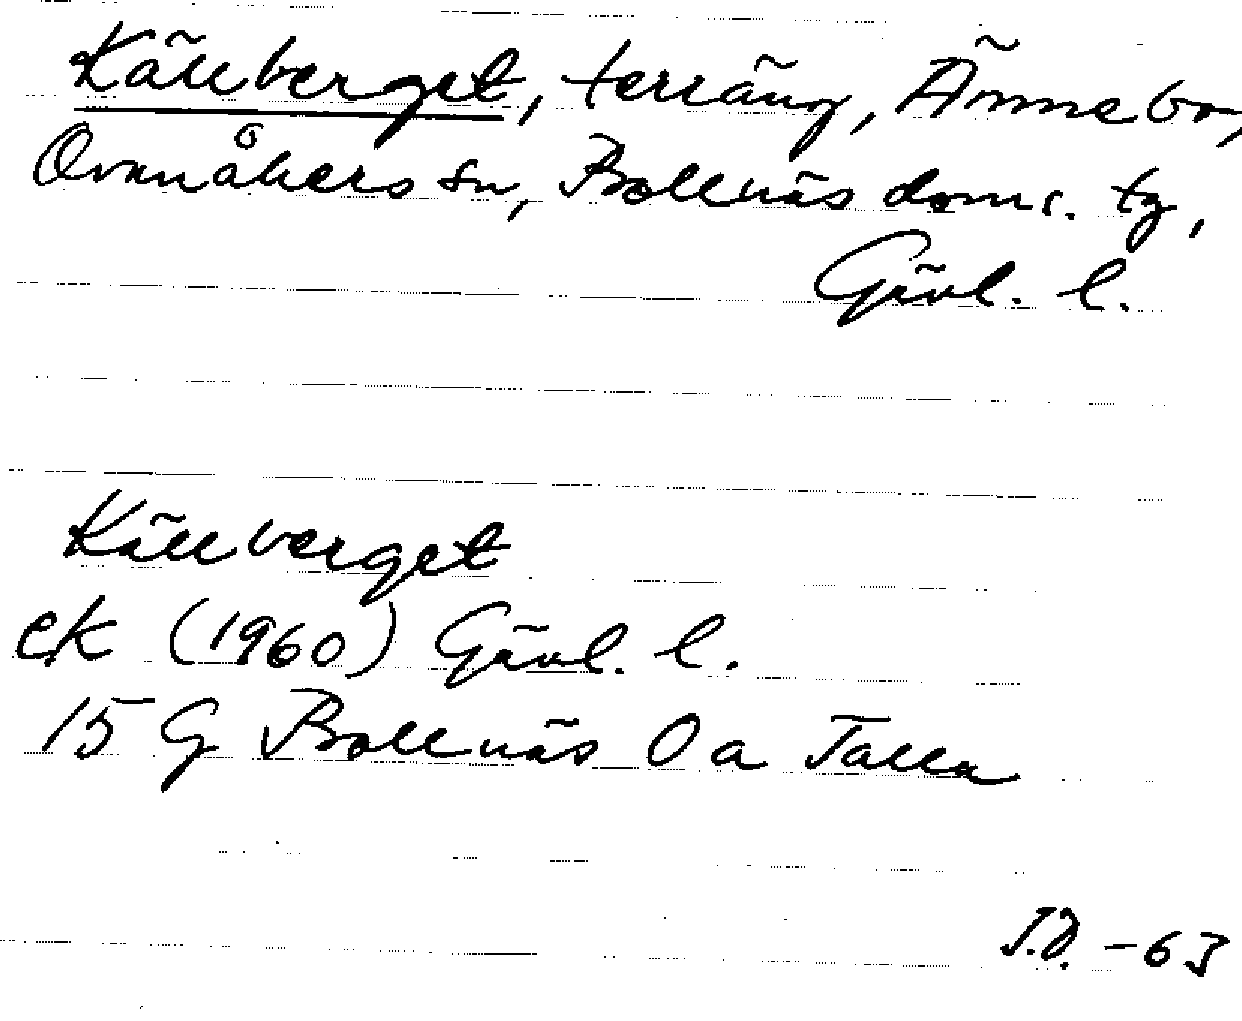 Källberget, terräng, Ännebo,
Ovanåkers sn, Bollnäs doms. tg,
Gävl. l.
Källberget
ek (1960) Gävl. l.
15 G Bollnäs 0 a Talla
J.D. -63